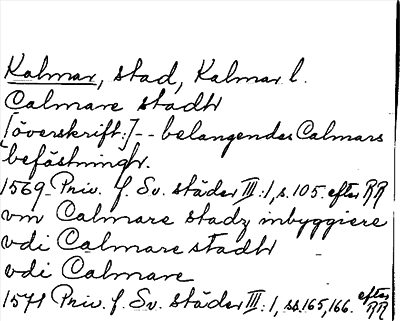 Kalmar, stad, Kalmar l.
Calmare stadtt
[överskrift:]-- belangendes Calmars
befästningh.
1569 Priv. f. Sv. städer III:1, s. 105. efter RR
vm Calmare stadz inbyggiere
vdi Calmare stadtt
vdi Calmare
1571 Priv. f. Sv. städer III:1, ss. 165, 166. efter RR